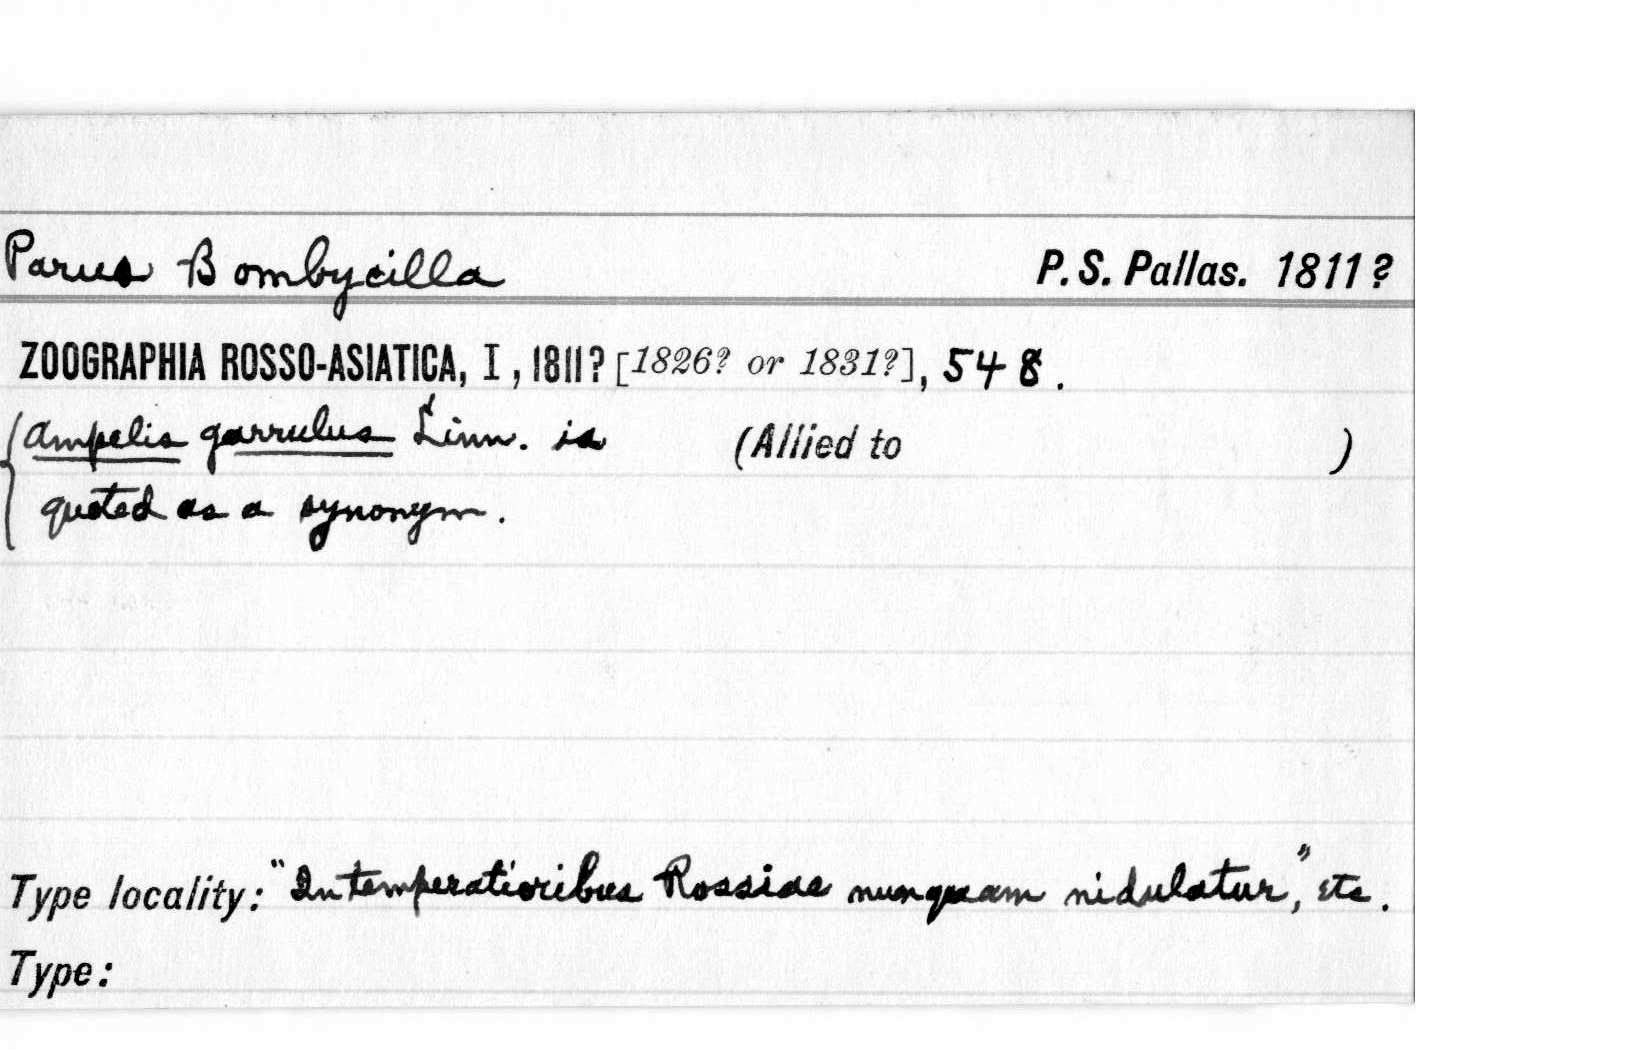 Parus Bombycilla P. S. Pallas. 1811?
ZOOGRAPHIA ROSSO-ASIATICA, I, 1811? [1826? or 1831?], 548.
{Ampelis garrulus Linn. is (Allied to )
quoted as a synonym.
Type locality: "In temperatioribus Rossiae nunquam nidulatur," etc.
Type: